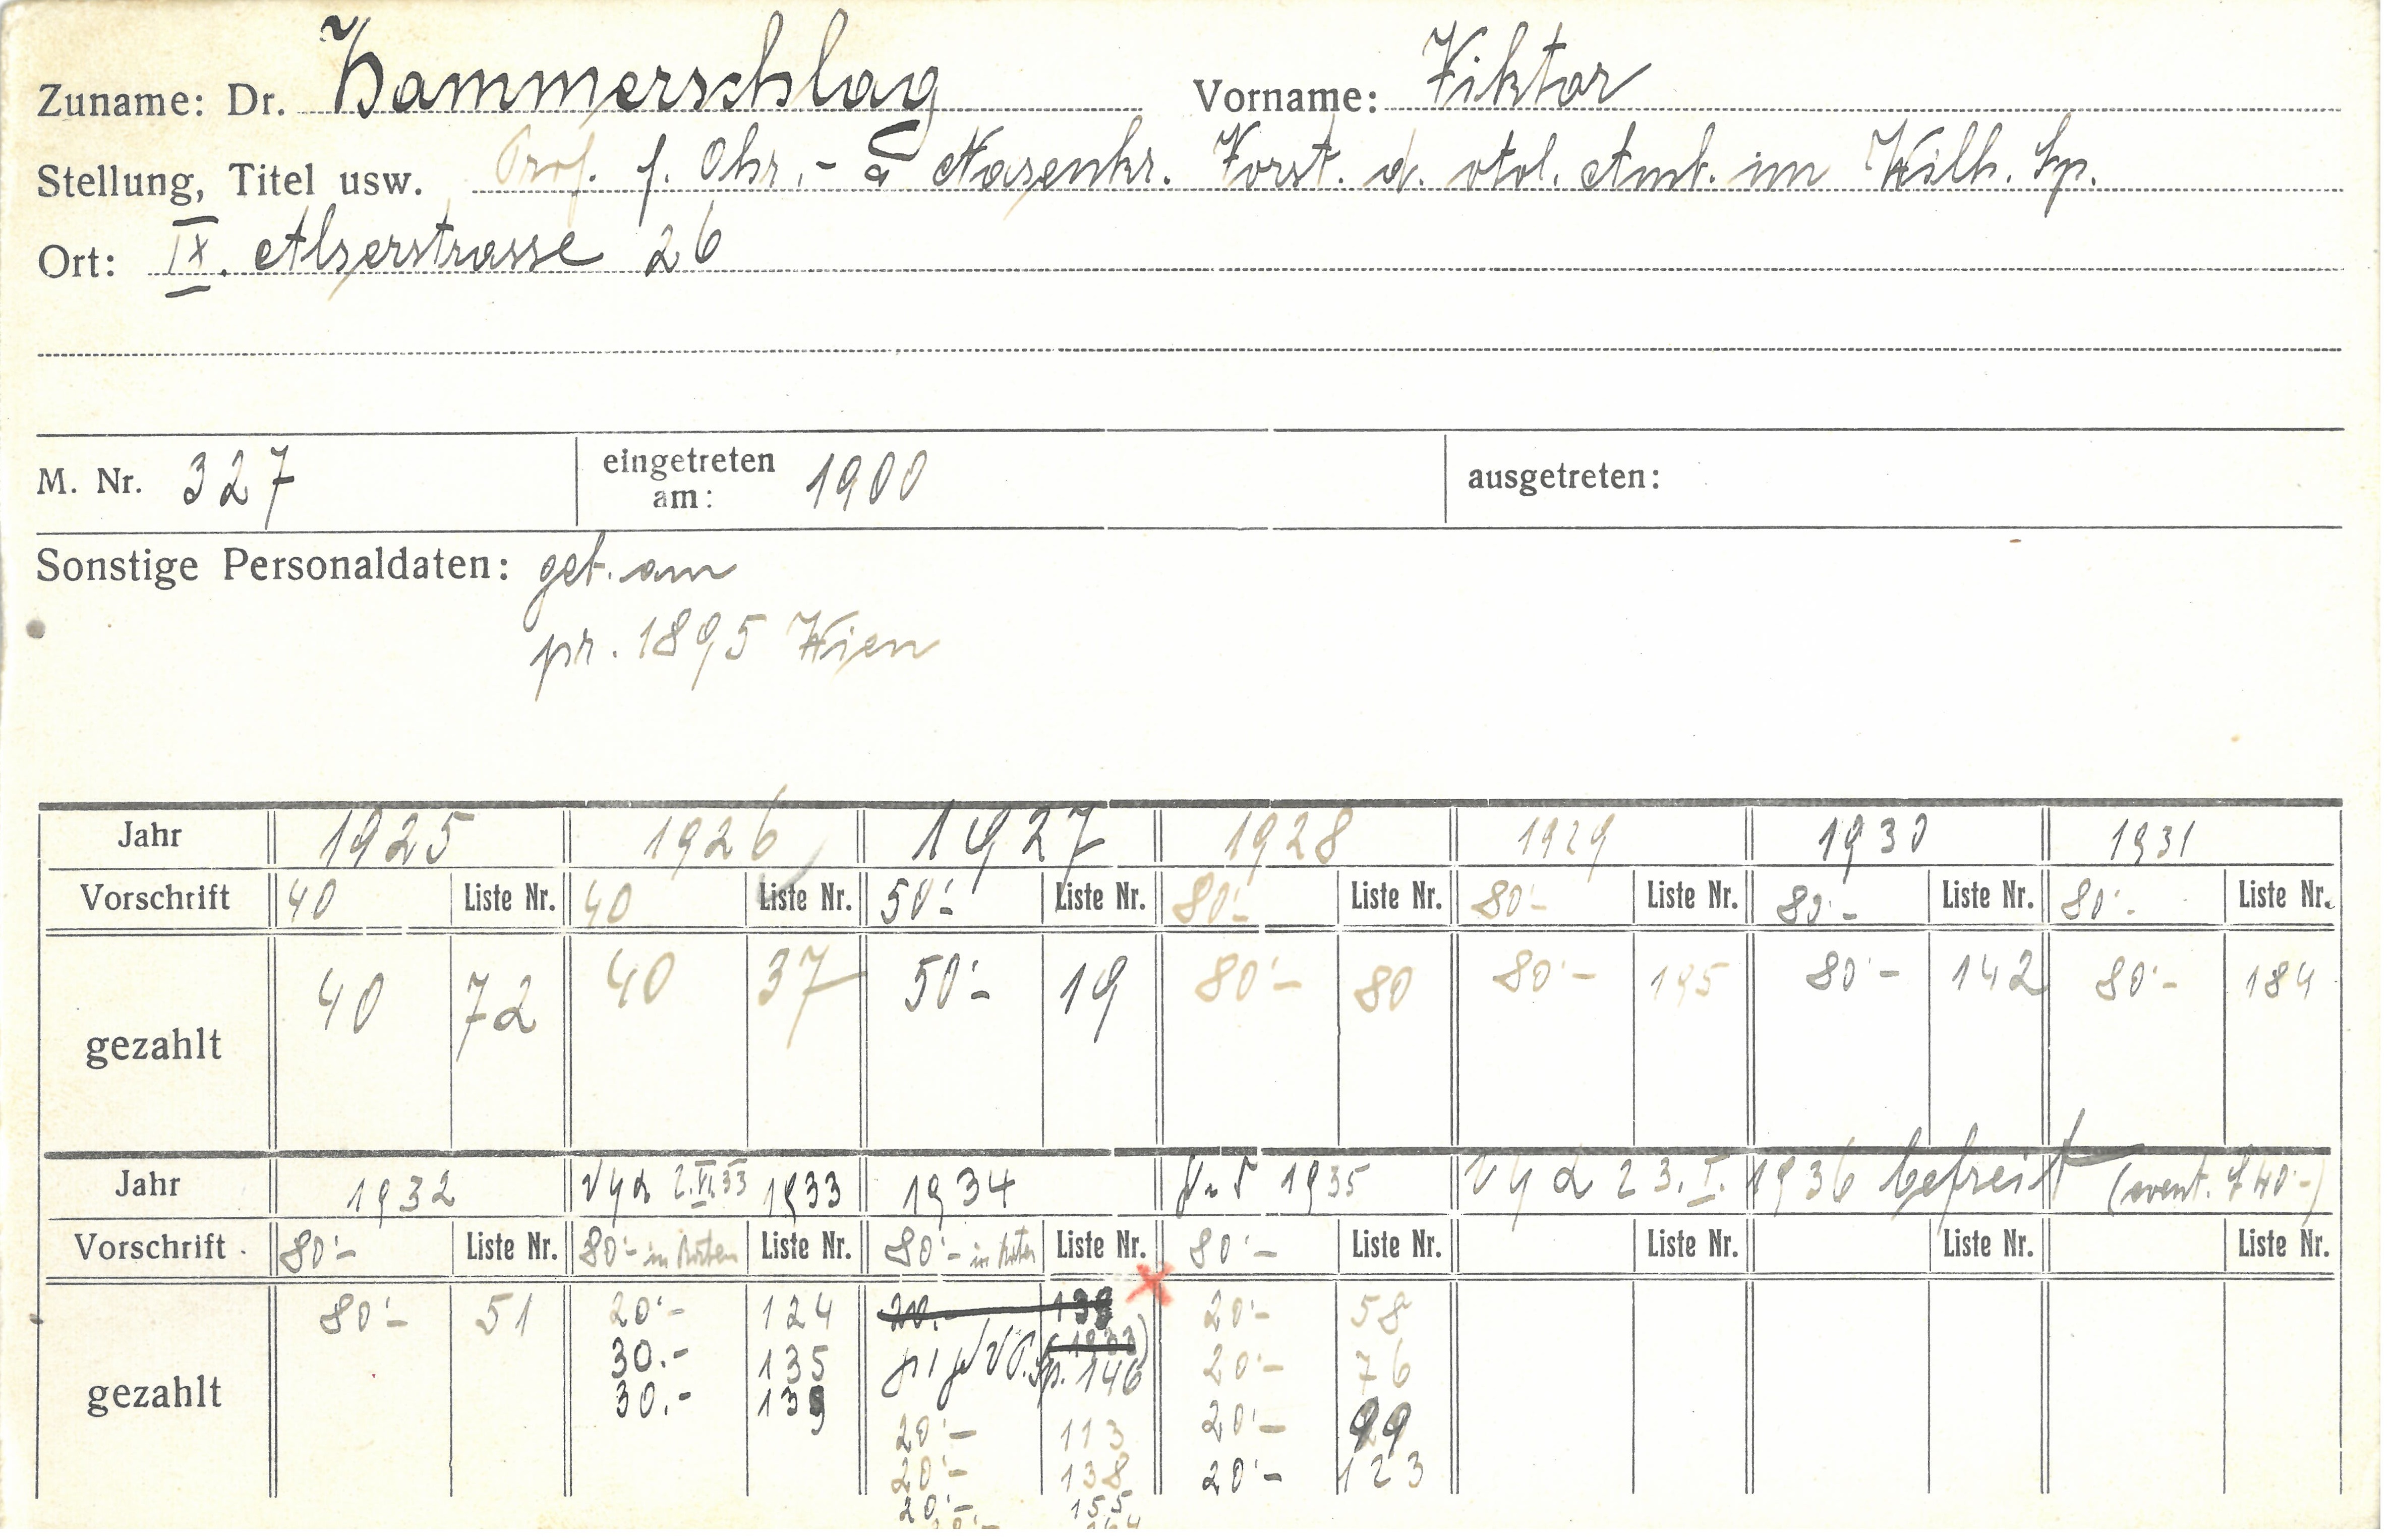 Zuname: Dr. Hammerschlag Vorname: Viktor
Stellung, Titel usw. Prof. f. Ohr.- u Nasenkr. Vorst. d. otol. Amb. im Wilh. Sp.
Ort: IX. Alserstrasse 26
M. Nr. 327 eingetreten am: 1900 ausgetreten:
Sonstige Personaldaten: geb. am
pr. 1895 Wien
Jahr 1925 1926 1927 1928 1929 1930 1931
Vorschrift 40 Liste Nr. 40 Liste Nr. 50'- Liste Nr. 80'- Liste Nr. 80'- Liste Nr. 80'- Liste Nr. 80'- Liste Nr.
gezahlt 40 72 40 37 50'- 19 80'- 80 80'- 195 80'- 142 80'- 184
Jahr 1932 2.VI.33 1933 1934 1935 23.I. 1936 befreit (event. 40'-)
Vorschrift 80'- Liste Nr. 80'- in Raten Liste Nr. 80'- in Raten Liste Nr. 80'- Liste Nr. Liste Nr. Liste Nr. Liste Nr.
gezahlt 80'- 51 20'- 124 20.- 20'- 58
30.- 135 146 20'- 76
30.- 139 20'- 113 20'- 99
20'- 138 20'- 123
20'- 155